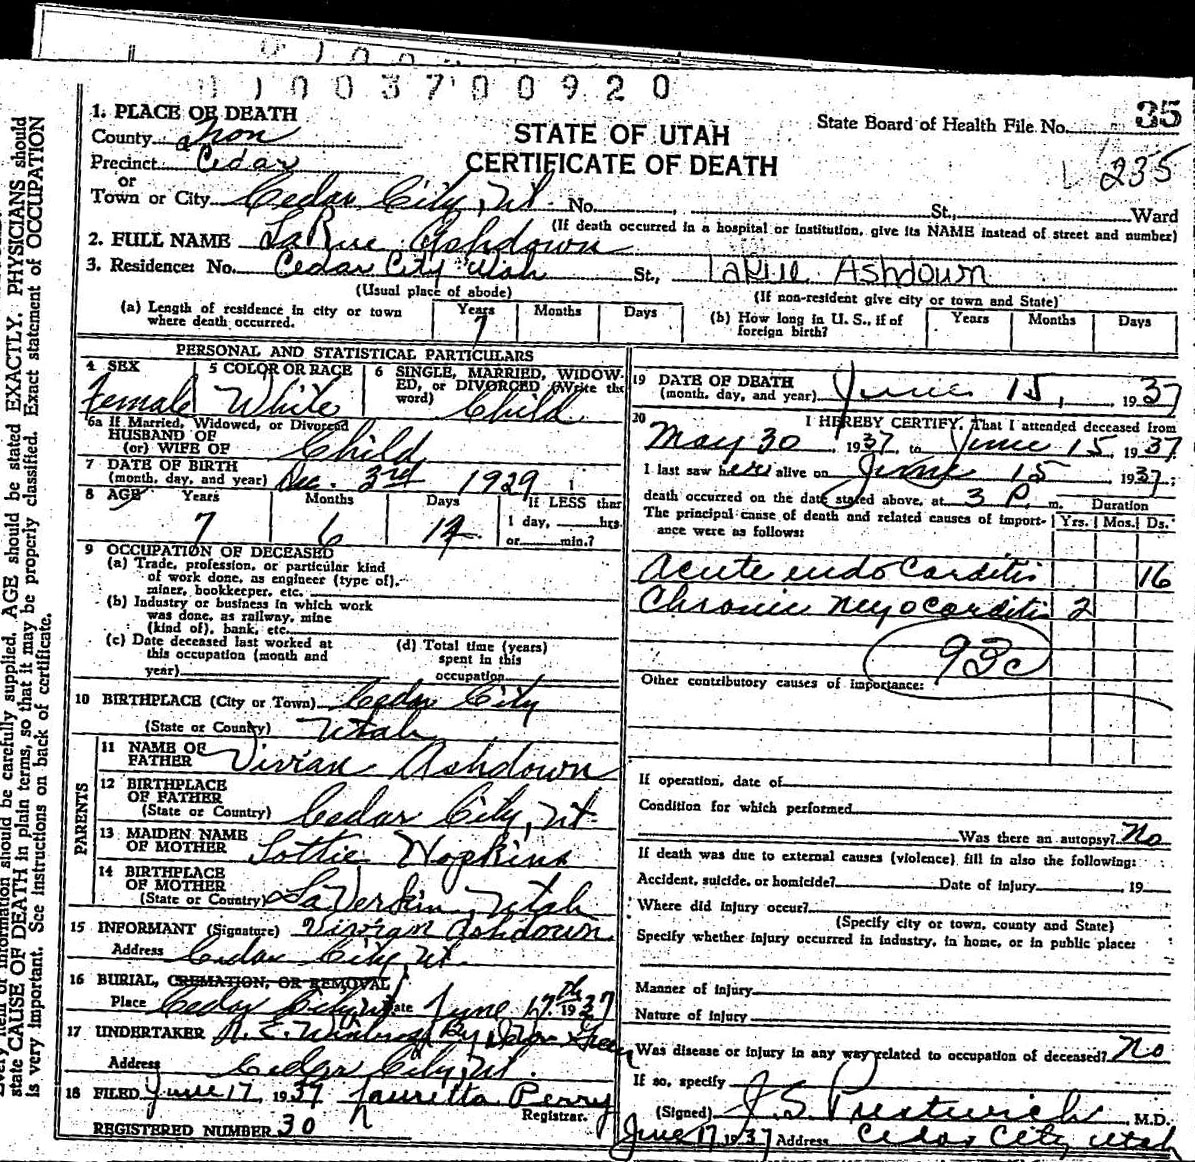 0 1 0 0 3 7 0 0 9 2 0
35
1. PLACE OF DEATH
County Iron
STATE OF UTAH
State Board of Health File No.
Precinct Cedar
CERTIFICATE OF DEATH
L 235
or
Town or City Cedar City, Ut. No. , St., Ward
(If death occurred in a hospital or institution, give its NAME instead of street and number)
2. FULL NAME LaRue Ashdown
3. Residence: No. Cedar City Utah St., LaRue Ashdown
(Usual place of abode) (If non-resident give city or town and State)
(a) Length of residence in city or town where death occurred. Years 7 Months Days
(b) How long in U. S., if of foreign birth? Years Months Days
PERSONAL AND STATISTICAL PARTICULARS
4 SEX Female
5 COLOR OR RACE White
6 SINGLE, MARRIED, WIDOWED, or DIVORCED (Write the word) Child
6a If Married, Widowed, or Divorced
HUSBAND OF
(or) WIFE OF Child
7 DATE OF BIRTH
(month, day, and year) Dec. 3rd 1929
8 AGE Years 7 Months 6 Days 12 If LESS than
1 day, hrs.
or min.?
9 OCCUPATION OF DECEASED
(a) Trade, profession, or particular kind
of work done, as engineer (type of),
miner, bookkeeper, etc.
(b) Industry or business in which work
was done, as railway, mine
(kind of), bank, etc.
(c) Date deceased last worked at
this occupation (month and
year)
(d) Total time (years)
spent in this
occupation
10 BIRTHPLACE (City or Town) Cedar City
(State or Country) Utah
PARENTS
11 NAME OF
FATHER Vivian Ashdown
12 BIRTHPLACE
OF FATHER
(State or Country) Cedar City, Ut
13 MAIDEN NAME
OF MOTHER Lottie Hopkins
14 BIRTHPLACE
OF MOTHER
(State or Country) LaVerkin, Utah
15 INFORMANT (Signature) Vivian Ashdown
Address Cedar City, Ut.
16 BURIAL, CREMATION, OR REMOVAL
Place Cedar City, Ut Date June 17th 1937
17 UNDERTAKER By
Address Cedar City, Ut.
18 FILED June 17, 1937 Lauretta Perry
Registrar.
REGISTERED NUMBER 30
19 DATE OF DEATH
(month, day, and year) June 15, 1937
20 I HEREBY CERTIFY, That I attended deceased from
May 30, 1937, to June 15, 1937.
I last saw her alive on June 15 1937;
death occurred on the date stated above, at 3 P. m. Duration
The principal cause of death and related causes of importance were as follows: Yrs. Mos. Ds.
Acute endo Carditis 16
Chronic Myocarditis 2
93c
Other contributory causes of importance:
If operation, date of
Condition for which performed
Was there an autopsy? No
If death was due to external causes (violence) fill in also the following:
Accident, suicide, or homicide? Date of injury , 19
Where did injury occur?
(Specify city or town, county and State)
Specify whether injury occurred in industry, in home, or in public place:
Manner of injury
Nature of injury
Was disease or injury in any way related to occupation of deceased? No
If so, specify
(Signed) J. S. Prestwich, M.D.
June 17 1937 Address Cedar City Utah
state CAUSE OF DEATH in plain terms, so that it may be properly classified. Exact statement of OCCUPATION
is very important. See instructions on back of certificate.
information should be carefully supplied. AGE should be stated EXACTLY. PHYSICIANS should